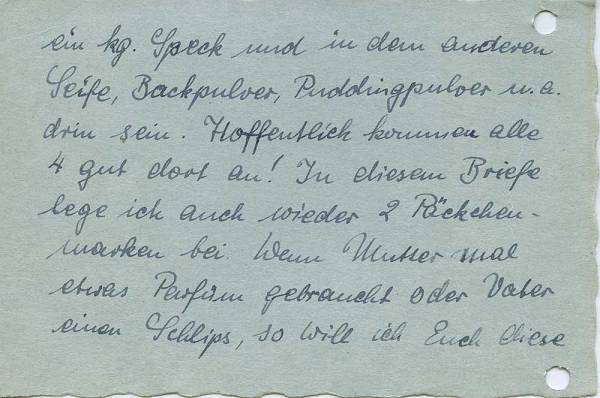 ein kg. Speck und in dem anderen
Seife, Backpulver, Puddingpulver u. a.
drin sein. Hoffentlich kommen alle
4 gut dort an! In diesem Briefe
lege ich auch wieder 2 Päckchen-
marken bei. Wenn Mutter mal
etwas Parfüm gebraucht oder Vater
einen Schlips, so will ich Euch diese